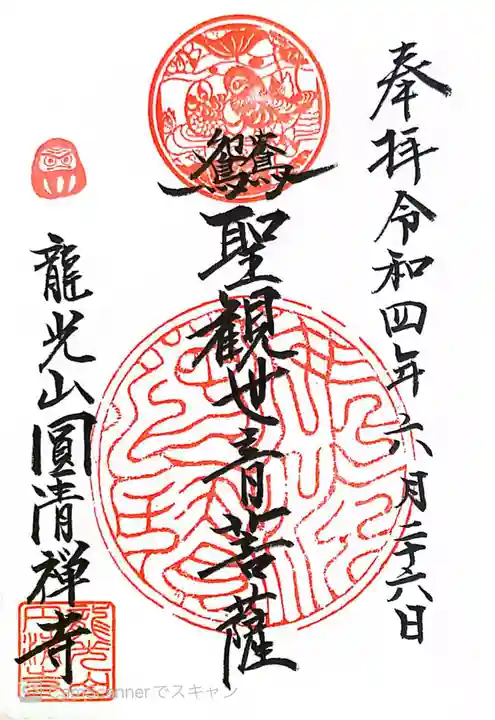 奉拝 令和四年六月二十六日
鴛鴦
聖観世音菩薩
龍光山圓清禅寺
CamScannerでスキャン